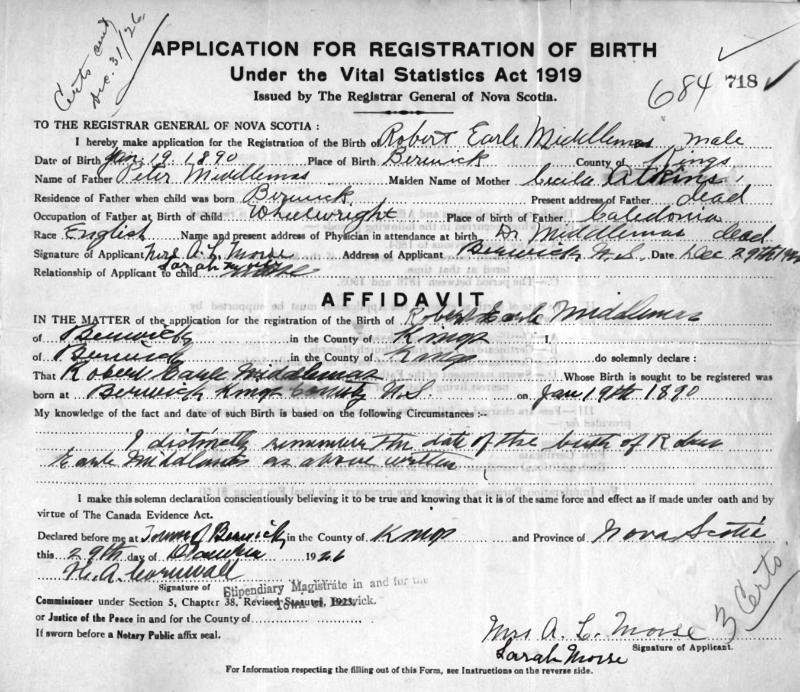 Certs and
Dec. 31/26
APPLICATION FOR REGISTRATION OF BIRTH
Under the Vital Statistics Act 1919
Issued by The Registrar General of Nova Scotia.
684 718
TO THE REGISTRAR GENERAL OF NOVA SCOTIA :
I hereby make application for the Registration of the Birth of Robert Earle Middlemas male
Date of Birth Jan. 19. 1890 Place of Birth Berwick County of Kings
Name of Father Peter Middlemas Maiden Name of Mother Cecilia Atkins
Residence of Father when child was born Berwick Present address of Father dead
Occupation of Father at Birth of child Wheelwright Place of birth of Father Caledonia
Race English Name and present address of Physician in attendance at birth Dr Middlemas dead
Signature of Applicant Mrs A. L. Morse Address of Applicant Berwick N.S. Date Dec 29th
Sarah Morse
Relationship of Applicant to child
AFFIDAVIT
IN THE MATTER of the application for the registration of the Birth of Robert Earle Middlemas
of Berwick in the County of Kings I
of Berwick in the County of Kings do solemnly declare :
That Robert Earle Middlemas Whose Birth is sought to be registered was
born at Berwick Kings County N.S. on Jan 19th 1890
My knowledge of the fact and date of such Birth is based on the following Circumstances :-
I distinctly remember the date of the birth of Robert
Earle Middlemas as above written
I make this solemn declaration conscientiously believing it to be true and knowing that it is of the same force and effect as if made under oath and by
virtue of The Canada Evidence Act.
Declared before me at Town of Berwick in the County of Kings and Province of Nova Scotia
this 29th day of December 1926
H. A. Cornwall
Signature of Stipendiary Magistrate in and for the
Commissioner under Section 5, Chapter 38, Revised Statutes, 1923. Town of Berwick.
or Justice of the Peace in and for the County of
If sworn before a Notary Public affix seal.
3 Certs.
Mrs A. L. Morse
Signature of Applicant.
Sarah Morse
For Information respecting the filling out of this Form, see Instructions on the reverse side.